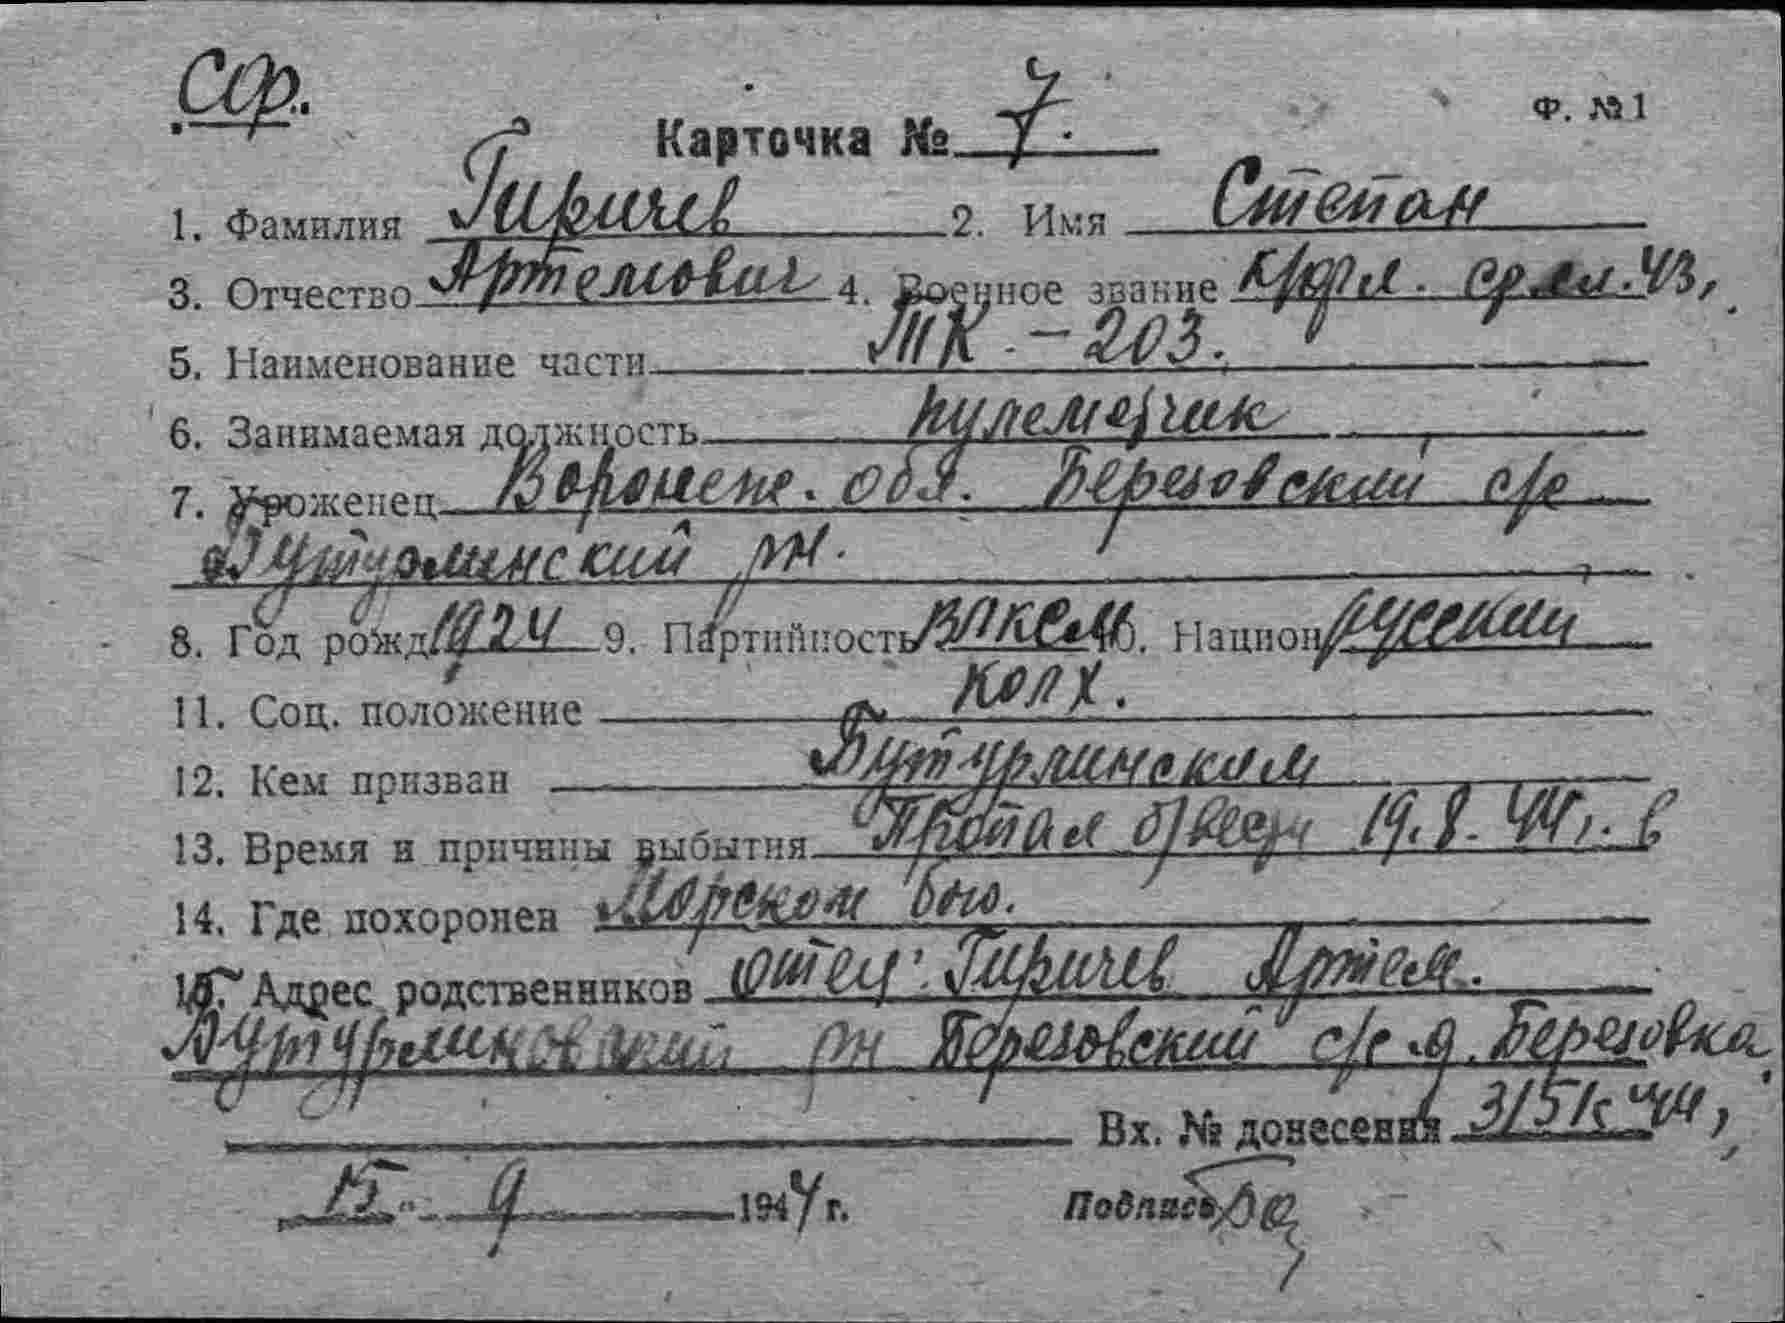 Сф.
Ф. №1
Карточка № 7.
1. Фамилия Гиричев 2. Имя Степан
3. Отчество Артемович 4. Военное звание к/фл. ср. сл. 43,
5. Наименование части ТК - 203.
6. Занимаемая должность пулеметчик
7. Уроженец Воронеж. обл. Березовский с/с
Бутурлинский рн.
8. Год рожд. 1924 9. Партийность ВЛКСМ 10. Национ русский
11. Соц. положение колх.
12. Кем призван Бутурлинским
13. Время и причины выбытия Пропал б/вести 19.8.44г. в
14. Где похоронен Морском бою.
15. Адрес родственников отец: Гиричев Артем.
Бутурлиновский рн Березовский с/с д. Березовка
Вх. № донесения 3151с 44,
15 9 1944 г. Подпись